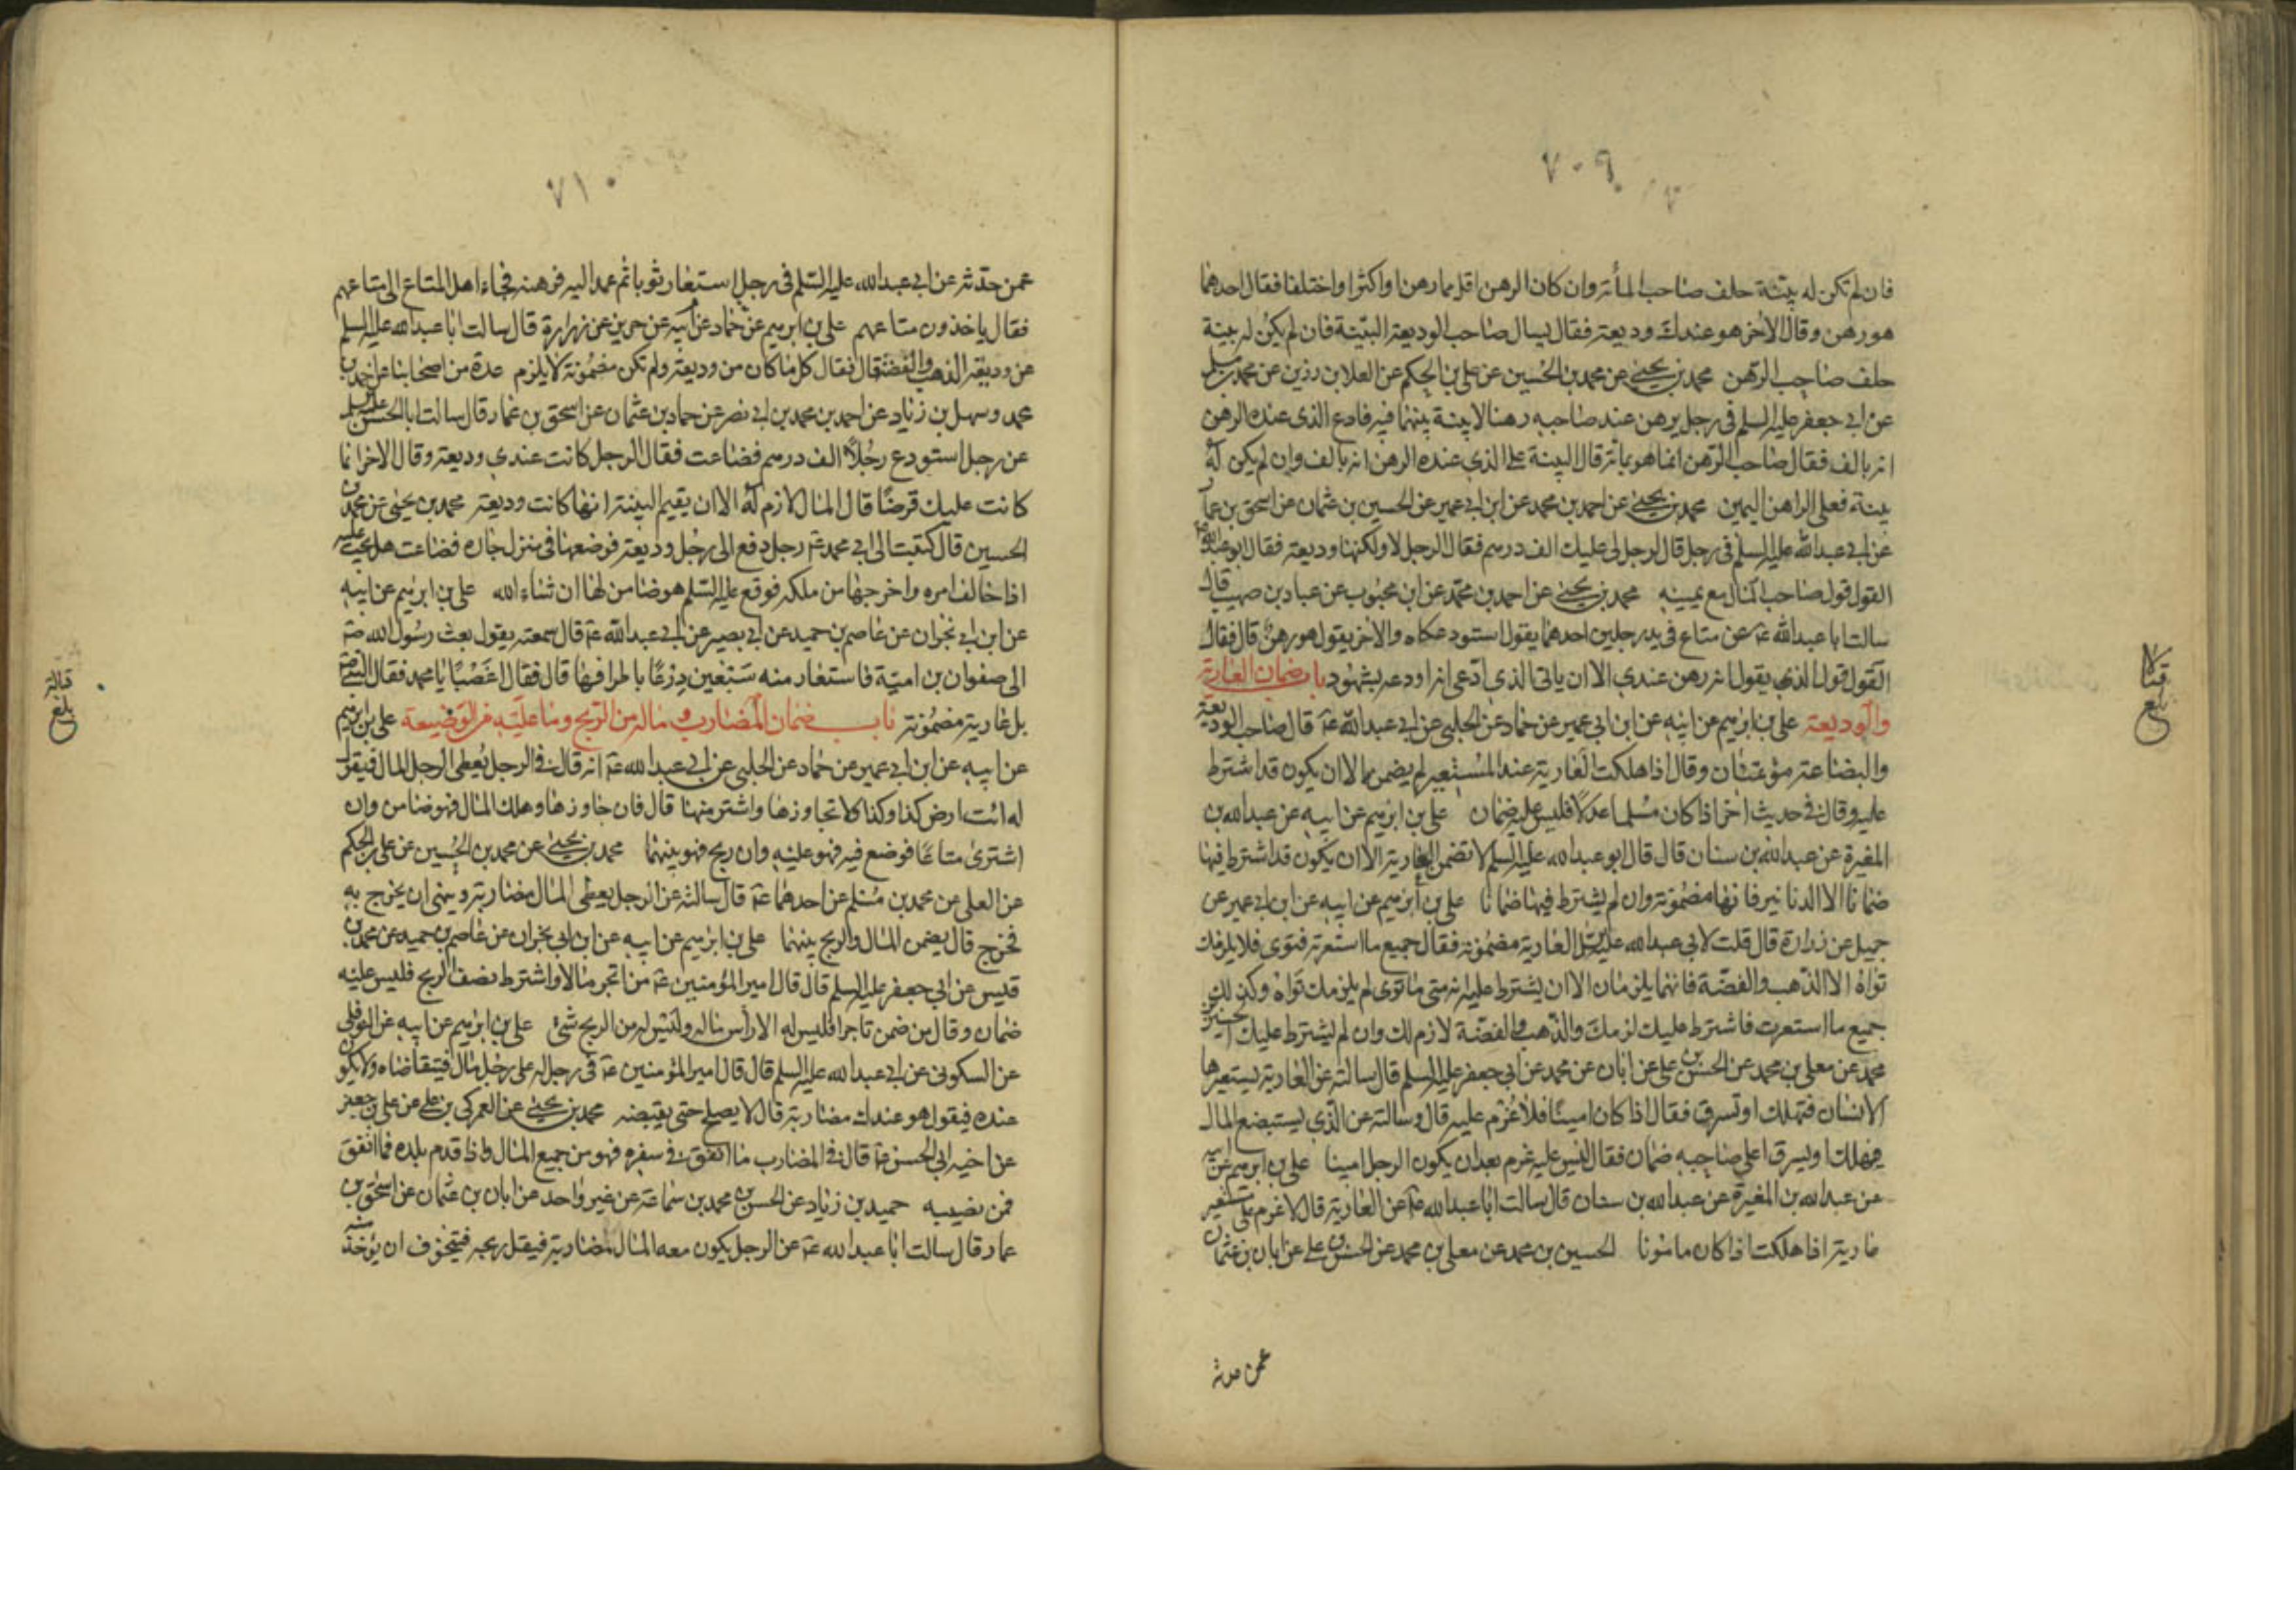 ٧٠٩
فان لم تكن له بينة حلف صاحب المأة وان كان الرهن اقل مما رهن او اكثر او اختلفا فقال احدهما
هو رهن وقال الآخر هو عندك وديعة فقال يسال صاحب الوديعة البينة فان لم يكن له بينة
حلف صاحب الرهن محمد بن يحيى عن محمد بن الحسين عن علي بن الحكم عن العلا بن رزين عن محمد بن مسلم
عن ابي جعفر عليه السلم في رجل يرهن عند صاحبه رهنا لا بينة بينهما فيه فادع الذى عنده الرهن
انه بالف فقال صاحب الرهن انما هو بمائة قال البينة على الذي عنده الرهن انه بالف وان لم يكن له
بينة فعلى الراهن اليمين محمد بن يحيى عن احمد بن محمد عن ابن ابي عمير عن الحسين بن عثمان عن اسحق بن عمار
عن ابي عبد الله عليه السلم في رجل قال لرجل لى عليك الف درسم فقال الرجل لا ولكنها وديعة فقال ابو عبد الله ع
القول قول صاحب المال مع يمينه محمد بن يحيى عن احمد بن محمد عن ابن محبوب عن عباد بن صهيب قال
سالت ابا عبد الله ع عن متاع في يد رجلين احدهما يقول استودعكاه والاخر يقول هو رهن قال فقال
القول قول الذي يقول انه رهن عندي الا ان ياتى الذي ادعى انه اودعه بشهود باب ضمان العارية
والوديعة علي بن ابرهيم عن ابيه عن ابن ابي عمير عن حماد عن الحلبي عن ابي عبد الله ع قال صاحب الوديعة
والبضاعة مؤتمنان وقال اذا هلكت العارية عند المستعير لم يضمنها الا ان يكون قد اشترط
عليه وقال في حديث اخر اذا كان مسلما عدلا فليس عليه ضمان علي بن ابرهيم عن ابيه عن عبد الله بن
المغيرة عن عبد الله بن سنان قال قال ابو عبد الله عليه السلم لا تضمن العارية الا ان يكون قد اشترط فيها
ضمانا الا الدنانير فانها مضمونة وان لم يشترط فيها ضمانا علي بن ابرهيم عن ابيه عن ابن ابي عمير عن
جميل عن زرارة قال قلت لابي عبد الله عليه السلم العارية مضمونة فقال جميع ما استعرته فتوى فلا يلزمك
تواه الا الذهب والفضة فانهما يلزمان الا ان يشترط عليه انه متى ما توى لم يلزمك تواه وكذلك
جميع ما استعرت فاشترط عليك لزمك والذهب والفضة لازم لك وان لم يشترط عليك الحسين بن
محمد عن معلى بن محمد عن الحسن بن على عن ابان عن محمد عن ابي جعفر عليه السلم قال سالته عن العارية يستعيرها
الانسان فتهلك او تسرق فقال اذا كان امينا فلا غرم عليه قال وسالته عن الذي يستبضع المال
فيهلك او يسرق اعلى صاحبه ضمان فقال ليس عليه غرم بعد ان يكون الرجل امينا علي بن ابرهيم عن ابيه
عن عبد الله بن المغيرة عن عبد الله بن سنان قال سالت ابا عبد الله ع عن العارية قال لا غرم على مستعير
عارية اذا هلكت اذا كان مامونا الحسين بن محمد عن معلى بن محمد عن الحسن بن على عن ابان بن عثمان
عمن حدثه
قبالا
بلغ
٧١٠
عمن حدثه عن ابي عبد الله عليه السلم في رجل استعار ثوبا ثم عمد اليه فرهنه فجاء اهل المتاع الى متاعهم
فقال ياخذون متاعهم علي بن ابرهيم عن ابيه عن حماد عن حريز عن زرارة قال سالت ابا عبد الله عليه السلم
عن وديعة الذهب والفضة قال فقال كل ما كان من وديعة ولم تكن مضمونة لا يلزم عدة من اصحابنا عن احمد بن
محمد وسهل بن زياد عن احمد بن محمد بن ابي نصر عن حماد بن عثمان عن اسحق بن عمار قال سالت ابا الحسن عليه السلم
عن رجل استودع رجلا الف درسم فضاعت فقال الرجل كانت عندي وديعة وقال الاخر انما
كانت عليك قرضا قال المال لازم له الا ان يقيم البينة انها كانت وديعة محمد بن يحيى عن محمد بن
الحسين قال كتبت الى ابي محمد ع رجل دفع الى رجل وديعة فوضعها في منزل جاره فضاعت هل يجب عليه
اذا خالف امره واخرجها من ملكه فوقع عليه السلم هو ضامن لها ان شاء الله علي بن ابرهيم عن ابيه
عن ابن ابي نجران عن عاصم بن حميد عن ابي بصير عن ابي عبد الله ع قال سمعته يقول بعث رسول الله ص
الى صفوان بن امية فاستعار منه سبعين درعا باطراقها قال فقال اغصبا يا محمد فقال النبي ص
بل عارية مضمونة باب ضمان المضاربة وماله من الربح وما عليه من الوضيعة علي بن ابرهيم
عن ابيه عن ابن ابي عمير عن حماد عن الحلبي عن ابي عبد الله ع انه قال في الرجل يعطى الرجل المال فيقول
له ائت ارض كذا وكذا ولا تجاوزها واشتر منها قال فان جاوزها وهلك المال فهو ضامن وان
اشترى متاعا فوضع فيه فهو عليه وان ربح فهو بينهما محمد بن يحيى عن محمد بن الحسين عن علي بن الحكم
عن العلى عن محمد بن مسلم عن احدهما ع قال سالته عن الرجل يعطى المال مضاربة وينهى ان يخرج به
فخرج قال يضمن المال والربح بينهما علي بن ابرهيم عن ابيه عن ابن ابي نجران عن عاصم بن حميد عن محمد بن
قيس عن ابي جعفر عليه السلم قال قال امير المؤمنين ع من اتجر مالا واشترط نصف الربح فليس عليه
ضمان وقال من ضمن تاجرا فليس له الا رأس ماله وليس له من الربح شئ علي بن ابرهيم عن ابيه عن النوفلي
عن السكونى عن ابي عبد الله عليه السلم قال قال امير المؤمنين ع في رجل له على رجل مال فيتقاضاه ولا يكون
عنده فيقول هو عندك مضاربة قال لا يصلح حتى يقبضه محمد بن يحيى عن العمركى بن على عن على بن جعفر
عن اخيه ابي الحسن ع قال في المضارب ما انفق في سفره فهو من جميع المال واذا قدم بلده فما انفق
فمن نصيبه حميد بن زياد عن الحسن بن محمد بن سماعة عن غير واحد عن ابان بن عثمان عن اسحق بن
عمار قال سالت ابا عبد الله ع عن الرجل يكون معه المال مضاربة فيقل ربحه فيتخوف ان يؤخذ منه
بلغ